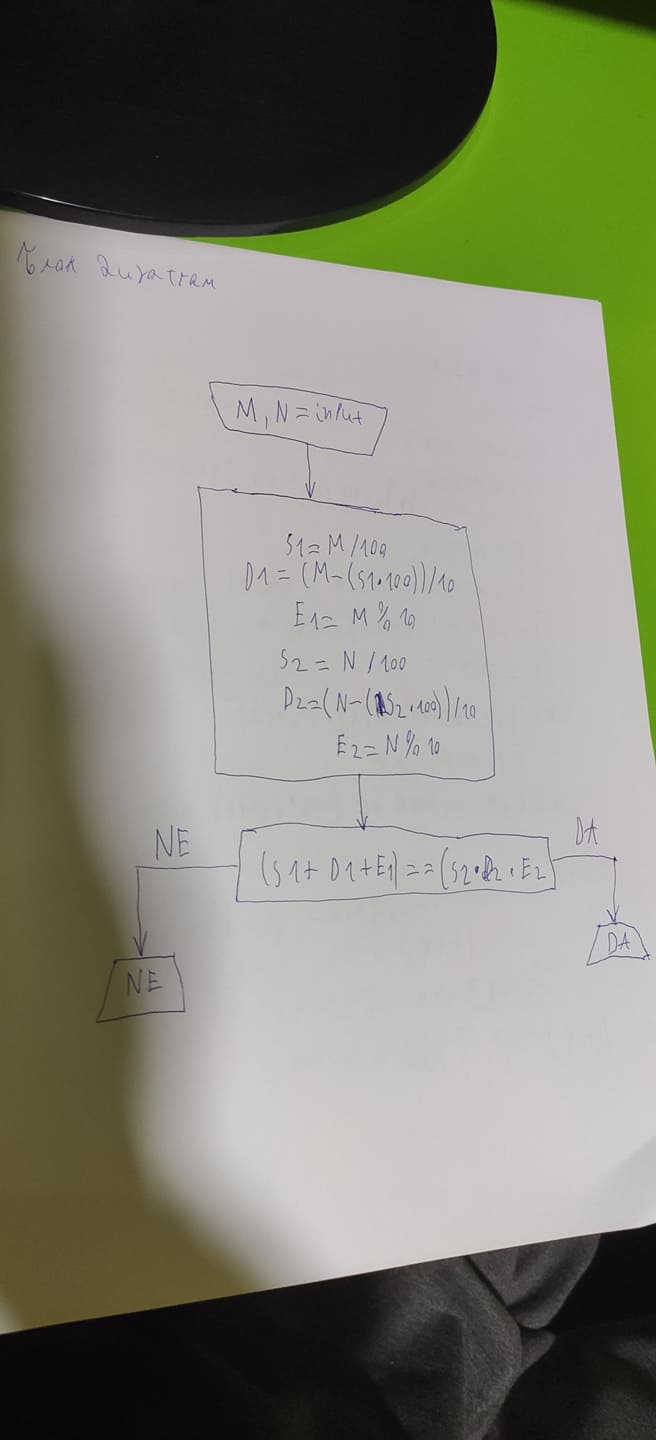 Блок диаграм
M, N = input
S1 = M / 100
D1 = (M - (S1 · 100)) / 10
E1 = M % 10
S2 = N / 100
D2 = (N - (S2 · 100)) / 10
E2 = N % 10
NE
DA
(S1 + D1 + E1) == (S2 · D2 · E2
NE
DA